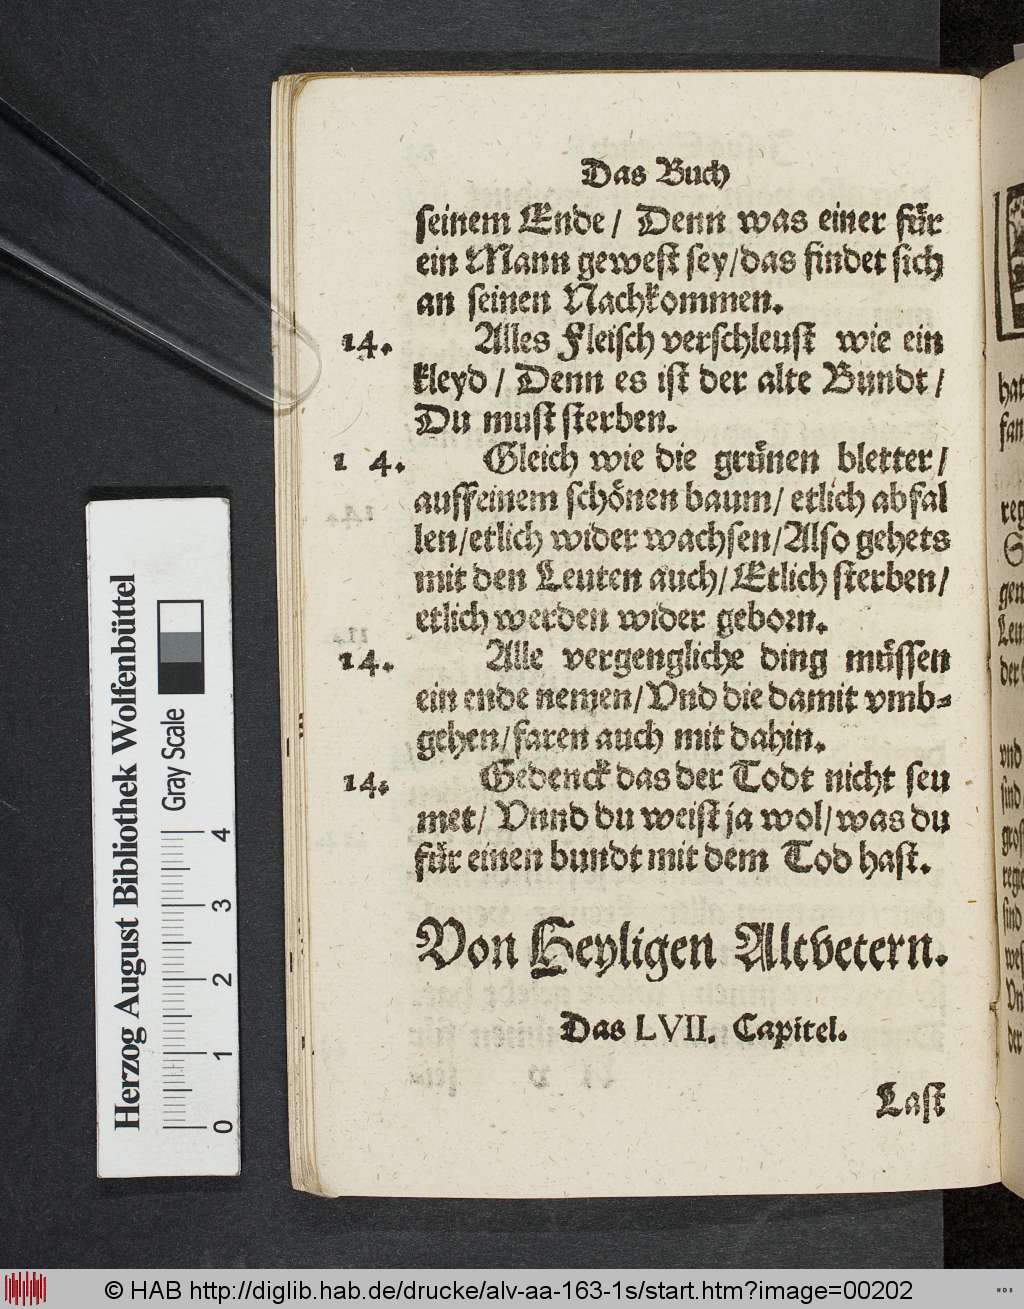 Das Buch
seinem Ende / Denn was einer für
ein Mann gewest sey/das findet sich
an seinen Nachkommen.
14. Alles Fleisch verschleust wie ein
kleyd / Denn es ist der alte Bundt /
Du must sterben.
1 4. Gleich wie die grünen bletter/
auffeinem schönen baum/ etlich abfal
len/etlich wider wachsen/Also gehets
mit den Leuten auch/Etlich sterben/
etlich werden wider geborn.
14. Alle vergengliche ding müssen
ein ende nemen/Vnd die damit vmb-
gehen/faren auch mit dahin.
14. Gedenck das der Todt nicht seu
met/ Vnnd du weist ja wol/was du
für einen bundt mit dem Tod hast.
Von Heyligen Altvetern.
Das LVII. Capitel.
Last
hat
fan
reg
gen
Leu
der
vnd
sind
gros
rege
sind
Vn
der
Herzog August Bibliothek Wolfenbüttel
Gray Scale
0 1 2 3 4
© HAB http://diglib.hab.de/drucke/alv-aa-163-1s/start.htm?image=00202